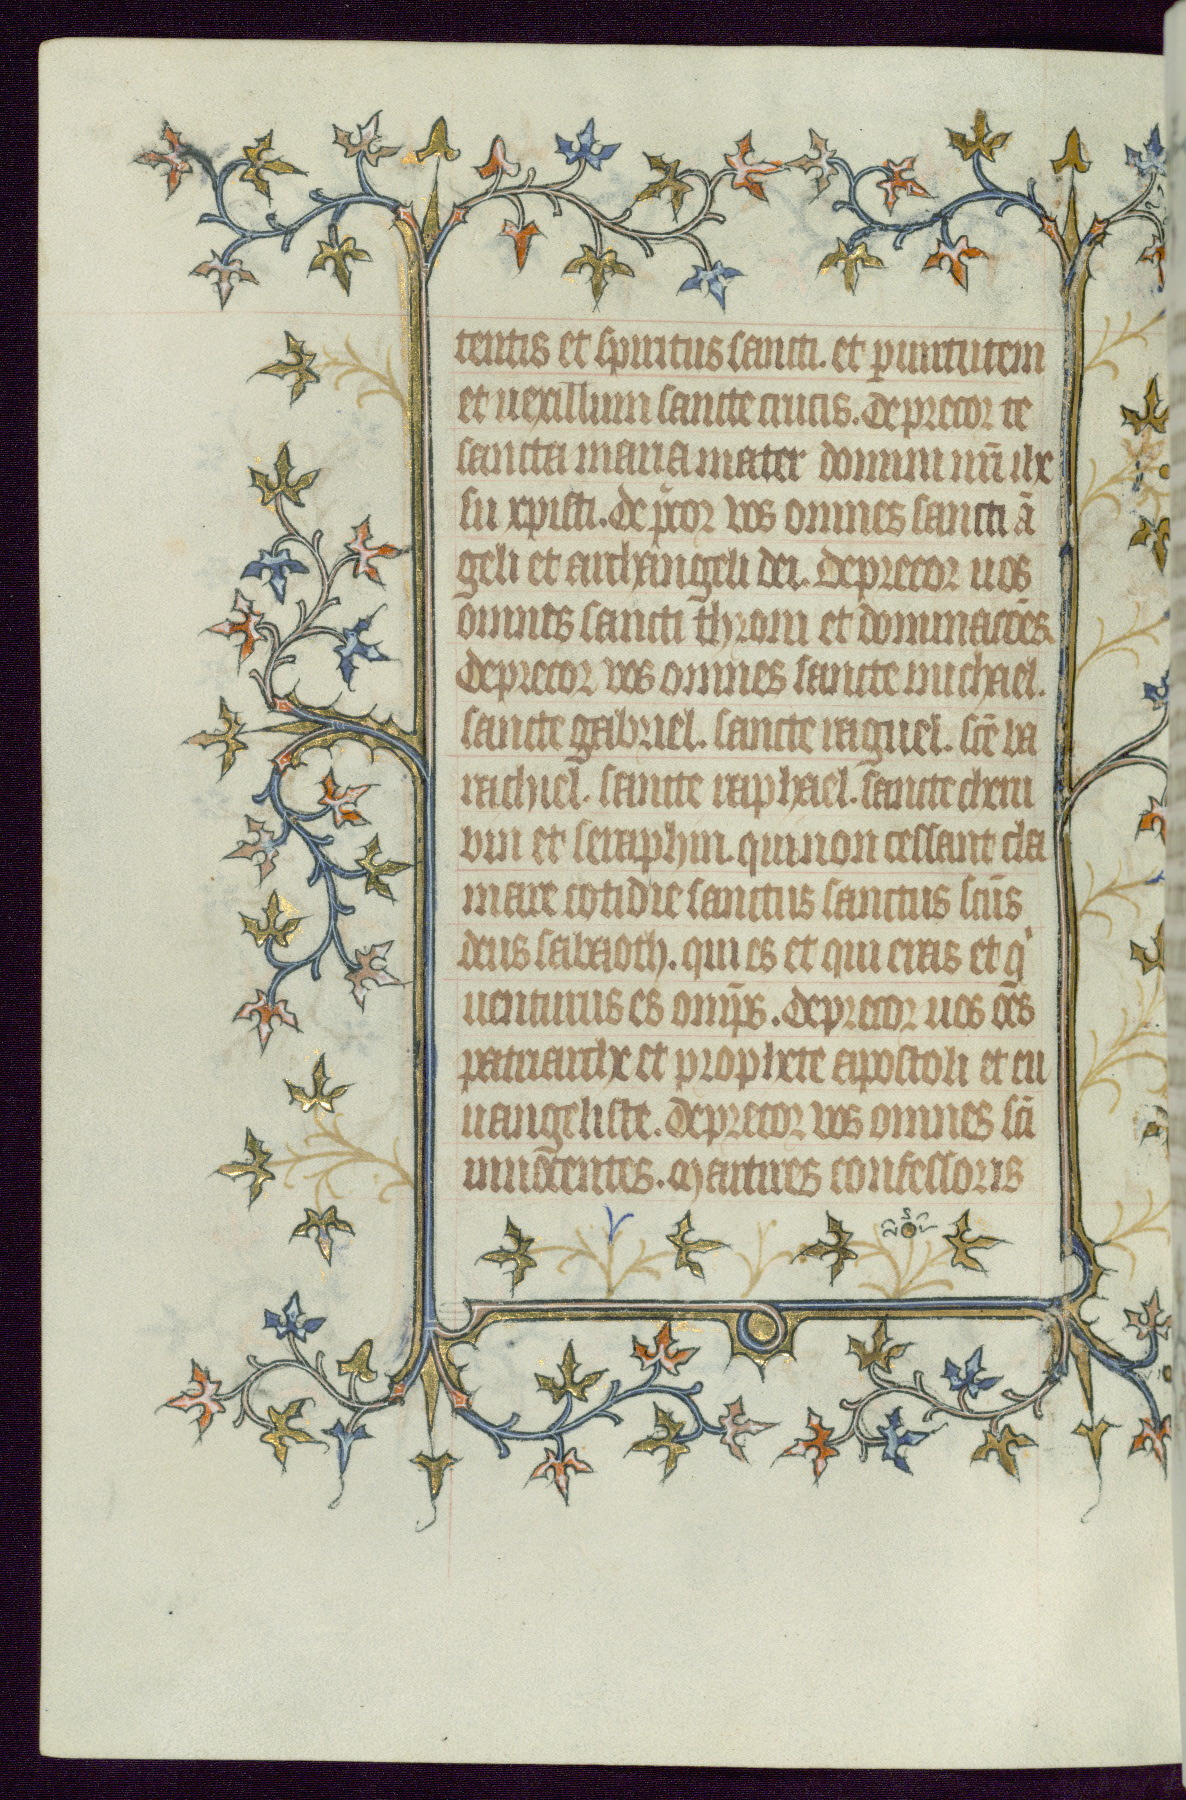 tentis et spiritus sancti. et p uirtutem
et uexillum sancte crucis. Deprecor te
sancta maria mater domini nr̄i ihe
su xpisti. Dep̄cor vos omnes sancti ā
geli et archangeli dei. Deprecor uos
omnes sancti throni et dominacōes
Deprecor vos omnes sancte michael.
sancte gabriel. sancte raguel. sc̄e ba
rachiel. sancte raphael. sancte cheru
vin et seraphin. qui non cessant cla
mare cotidie sanctus sanctus sc̄us
deus sabaoth. qui es et qui eras et qi
uenturus es omp̄s. Deprecor uos oēs
patriarche et prophete apostoli et eu
uangeliste. Deprecor vos omnes sc̄i
innōcentes. Martires confessoris